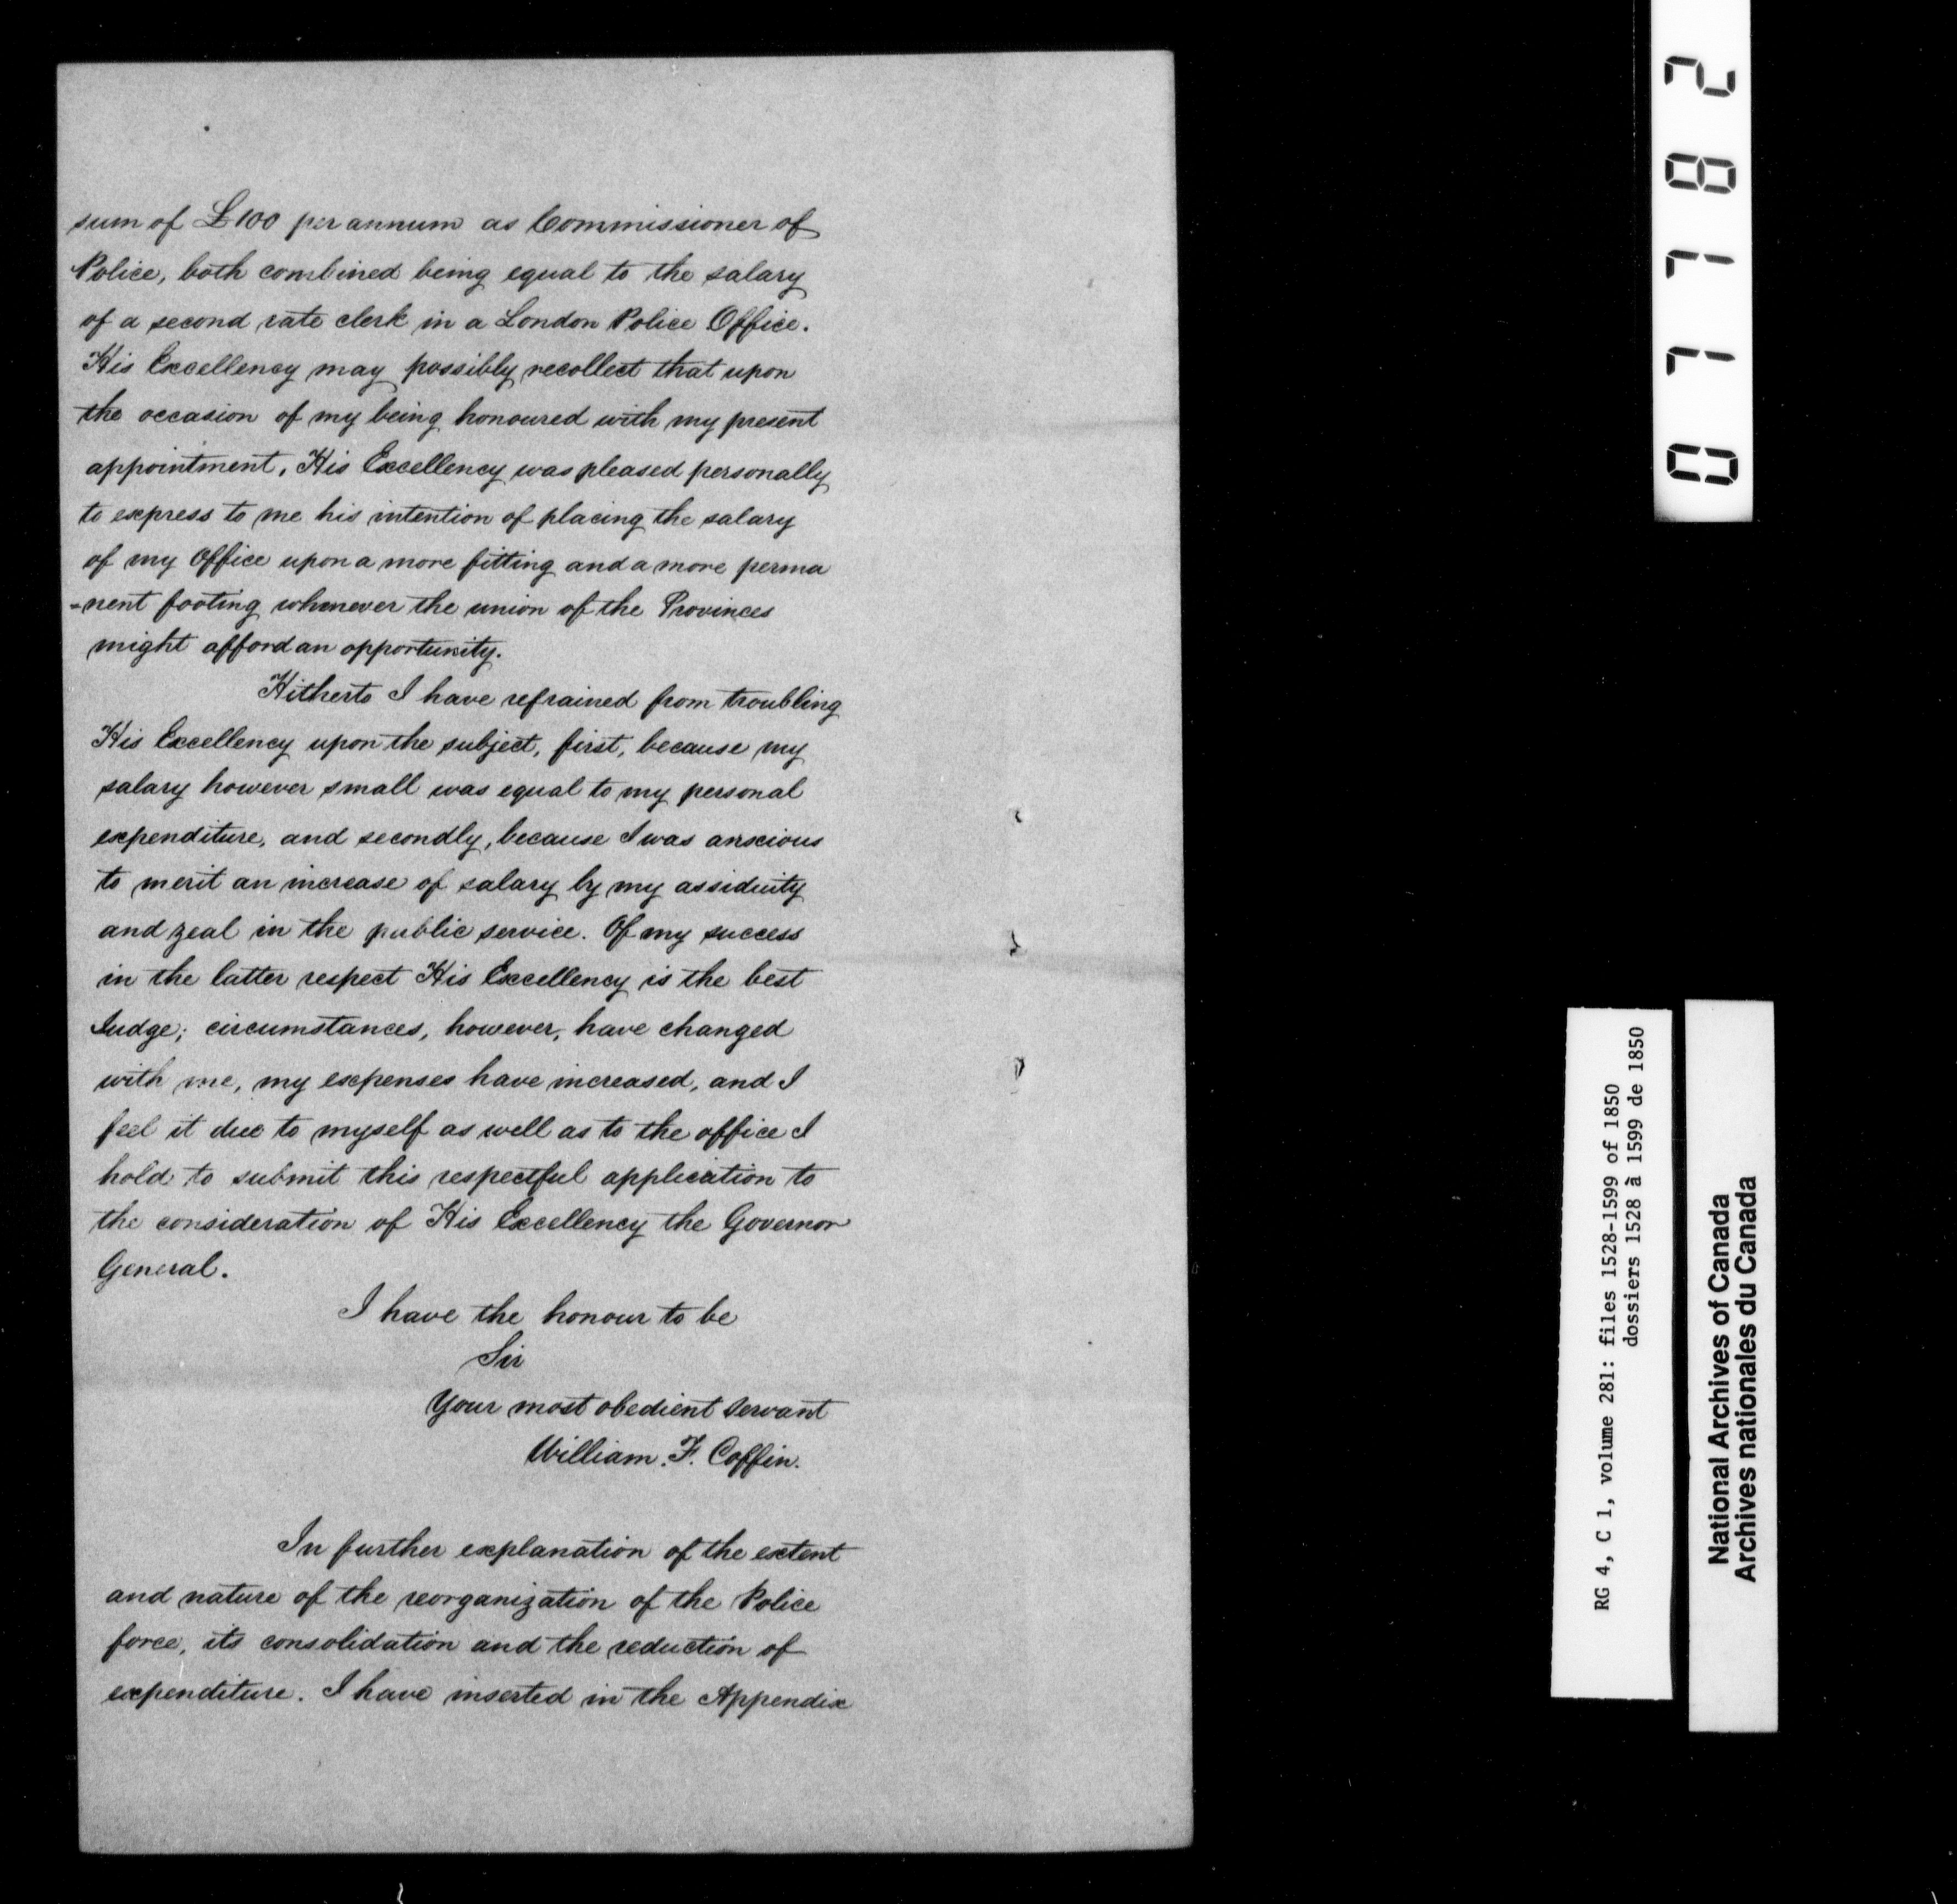 sum of £100 per annum as Commissioner of
Police, both combined being equal to the salary
of a second rate clerk in a London Police Office.
His Excellency may possibly recollect that upon
the occasion of my being honoured with my present
appointment, His Excellency was pleased personally
to express to me his intention of placing the salary
of my Office upon a more fitting and a more perma
-nent footing whenever the union of the Provinces
might afford an opportunity.
Hitherto I have refrained from troubling
His Excellency upon the subject, first, because my
salary however small was equal to my personal
expenditure, and secondly, because I was anxious
to merit an increase of salary by my assiduity
and zeal in the public service. Of my success
in the latter respect His Excellency is the best
Judge; circumstances, however, have changed
with me, my expenses have increased, and I
feel it due to myself as well as to the office I
hold to submit this respectful application to
the consideration of His Excellency the Governor
General.
I have the honour to be
Sir
Your most obedient servant
William. F. Coffin.
In further explanation of the extent
and nature of the reorganization of the Police
force, its consolidation and the reduction of
expenditure. I have inserted in the Appendix
07782
RG 4, C 1, volume 281: files 1528-1599 of 1850
dossiers 1528 à 1599 de 1850
National Archives of Canada
Archives nationales du Canada